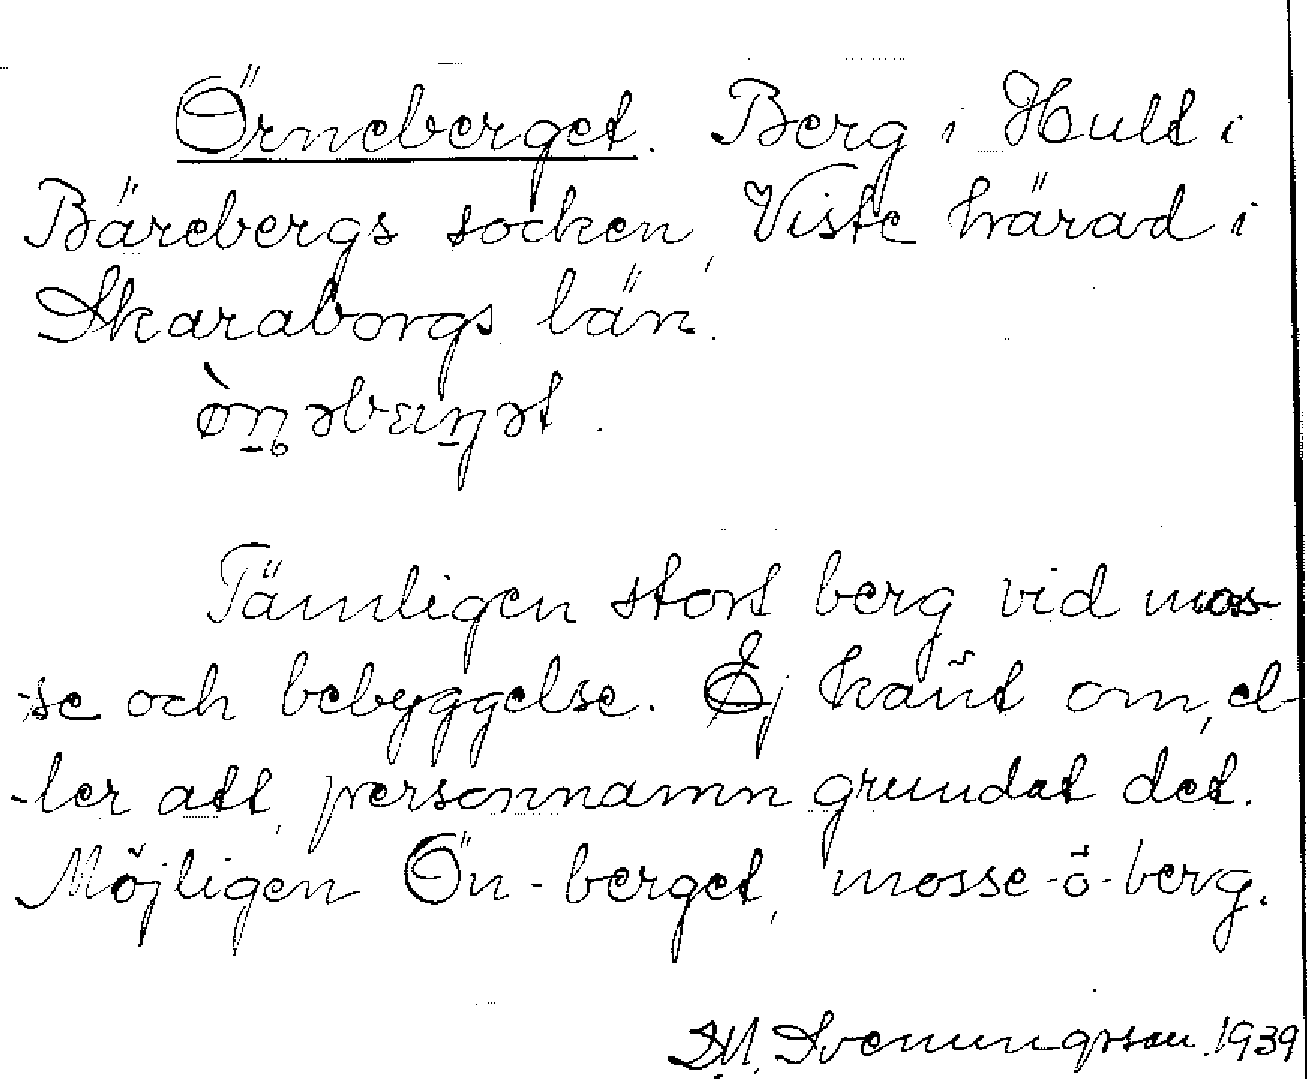 Örneberget. Berg i Hult i
Bärebergs socken, Viste härad i
Skaraborgs län.
Tämligen stort berg vid mos-
-se och bebyggelse. Ej känt om, el-
-ler att, personnamn grundat det.
Möjligen Ön-berget, mosse-ö-berg.
Svenungsson. 1939